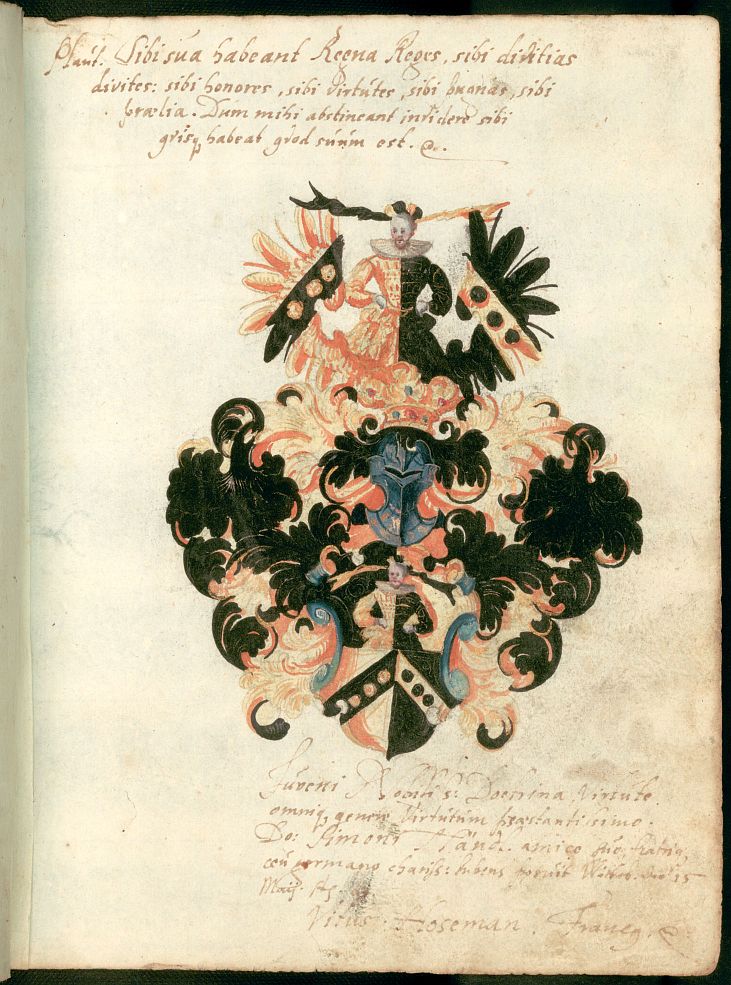 Plaut. Sibi sua habeant Regna Reges, sibi divitias
divites: sibi honores, sibi virtutes, sibi pugnas, sibi
prælia. Dum mihi abstineant invidere sibi
quisq habeat quod suum est.
Juveni Nobiliss: Doctrina Virtute
omniq genere Virtutum præstantissimo.
Do: Simoni amico suo, fratriq
ceu germano chariss: lubens posuit 15
Maij.
Vitus Hoseman